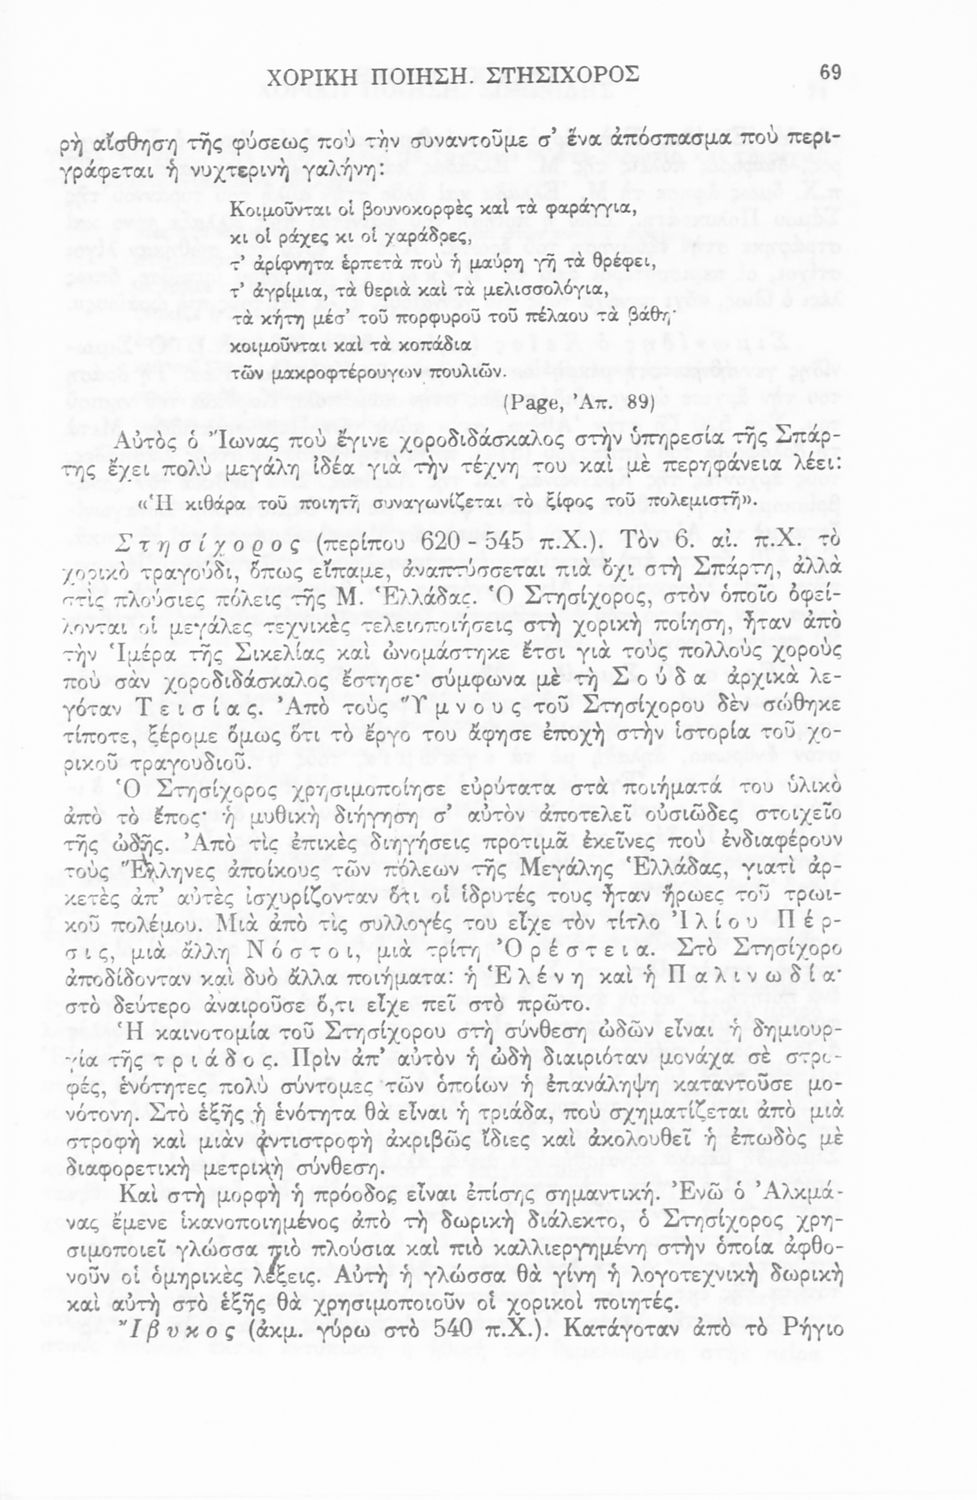 ΧΟΡΙΚΗ ΠΟΙΗΣΗ. ΣΤΗΣΙΧΟΡΟΣ 69
ρὴ αἴσθηση τῆς φύσεως ποὺ τὴν συναντοῦμε σ' ἕνα ἀπόσπασμα ποὺ περι-
γράφεται ἡ νυχτερινὴ γαλήνη:
Κοιμοῦνται οἱ βουνοκορφὲς καὶ τὰ φαράγγια,
κι οἱ ράχες κι οἱ χαράδρες,
τ' ἀρίφνητα ἑρπετὰ ποὺ ἡ μαύρη γῆ τὰ θρέφει,
τ' ἀγρίμια, τὰ θεριὰ καὶ τὰ μελισσολόγια,
τὰ κήτη μέσ' τοῦ πορφυροῦ τοῦ πέλαου τὰ βάθη·
κοιμοῦνται καὶ τὰ κοπάδια
τῶν μακροφτέρουγων πουλιῶν.
(Page, Ἀπ. 89)
Αὐτὸς ὁ Ἴωνας ποὺ ἔγινε χοροδιδάσκαλος στὴν ὑπηρεσία τῆς Σπάρ-
της ἔχει πολὺ μεγάλη ἰδέα γιὰ τὴν τέχνη του καὶ μὲ περηφάνεια λέει:
«Ἡ κιθάρα τοῦ ποιητῆ συναγωνίζεται τὸ ξίφος τοῦ πολεμιστῆ».
Στησίχορος (περίπου 620 - 545 π.Χ.). Τὸν 6. αἰ. π.Χ. τὸ
χορικὸ τραγούδι, ὅπως εἴπαμε, ἀναπτύσσεται πιὰ ὄχι στὴ Σπάρτη, ἀλλὰ
στὶς πλούσιες πόλεις τῆς Μ. Ἑλλάδας. Ὁ Στησίχορος, στὸν ὁποῖο ὀφεί-
λονται οἱ μεγάλες τεχνικὲς τελειοποιήσεις στὴ χορικὴ ποίηση, ἦταν ἀπὸ
τὴν Ἱμέρα τῆς Σικελίας καὶ ὠνομάστηκε ἔτσι γιὰ τοὺς πολλοὺς χοροὺς
ποὺ σὰν χοροδιδάσκαλος ἔστησε· σύμφωνα μὲ τὴ Σούδα ἀρχικὰ λε-
γόταν Τεισίας. Ἀπὸ τοὺς Ὕμνους τοῦ Στησίχορου δὲν σώθηκε
τίποτε, ξέρομε ὅμως ὅτι τὸ ἔργο του ἄφησε ἐποχὴ στὴν ἱστορία τοῦ χο-
ρικοῦ τραγουδιοῦ.
Ὁ Στησίχορος χρησιμοποίησε εὐρύτατα στὰ ποιήματά του ὑλικὸ
ἀπὸ τὸ ἔπος· ἡ μυθικὴ διήγηση σ' αὐτὸν ἀποτελεῖ οὐσιῶδες στοιχεῖο
τῆς ὠδῆς. Ἀπὸ τὶς ἐπικὲς διηγήσεις προτιμᾶ ἐκεῖνες ποὺ ἐνδιαφέρουν
τοὺς Ἕλληνες ἀποίκους τῶν πόλεων τῆς Μεγάλης Ἑλλάδας, γιατὶ ἀρ-
κετὲς ἀπ' αὐτὲς ἰσχυρίζονταν ὅτι οἱ ἱδρυτές τους ἦταν ἥρωες τοῦ τρωι-
κοῦ πολέμου. Μιὰ ἀπὸ τὶς συλλογές του εἶχε τὸν τίτλο Ἰλίου Πέρ-
σις, μιὰ ἄλλη Νόστοι, μιὰ τρίτη Ὀρέστεια. Στὸ Στησίχορο
ἀποδίδονταν καὶ δυὸ ἄλλα ποιήματα: ἡ Ἑλένη καὶ ἡ Παλινωδία·
στὸ δεύτερο ἀναιροῦσε ὅ,τι εἶχε πεῖ στὸ πρῶτο.
Ἡ καινοτομία τοῦ Στησίχορου στὴ σύνθεση ὠδῶν εἶναι ἡ δημιουρ-
γία τῆς τριάδος. Πρὶν ἀπ' αὐτὸν ἡ ὠδὴ διαιριόταν μονάχα σὲ στρο-
φές, ἑνότητες πολὺ σύντομες τῶν ὁποίων ἡ ἐπανάληψη καταντοῦσε μο-
νότονη. Στὸ ἑξῆς ἡ ἑνότητα θὰ εἶναι ἡ τριάδα, ποὺ σχηματίζεται ἀπὸ μιὰ
στροφὴ καὶ μιὰν ἀντιστροφὴ ἀκριβῶς ἴδιες καὶ ἀκολουθεῖ ἡ ἐπωδὸς μὲ
διαφορετικὴ μετρικὴ σύνθεση.
Καὶ στὴ μορφὴ ἡ πρόοδος εἶναι ἐπίσης σημαντική. Ἐνῶ ὁ Ἀλκμά-
νας ἔμενε ἱκανοποιημένος ἀπὸ τὴ δωρικὴ διάλεκτο, ὁ Στησίχορος χρη-
σιμοποιεῖ γλώσσα πιὸ πλούσια καὶ πιὸ καλλιεργημένη στὴν ὁποία ἀφθο-
νοῦν οἱ ὁμηρικὲς λέξεις. Αὐτὴ ἡ γλώσσα θὰ γίνη ἡ λογοτεχνικὴ δωρικὴ
καὶ αὐτὴ στὸ ἑξῆς θὰ χρησιμοποιοῦν οἱ χορικοὶ ποιητές.
Ἴβυκος (ἀκμ. γύρω στὸ 540 π.Χ.). Κατάγοταν ἀπὸ τὸ Ρήγιο